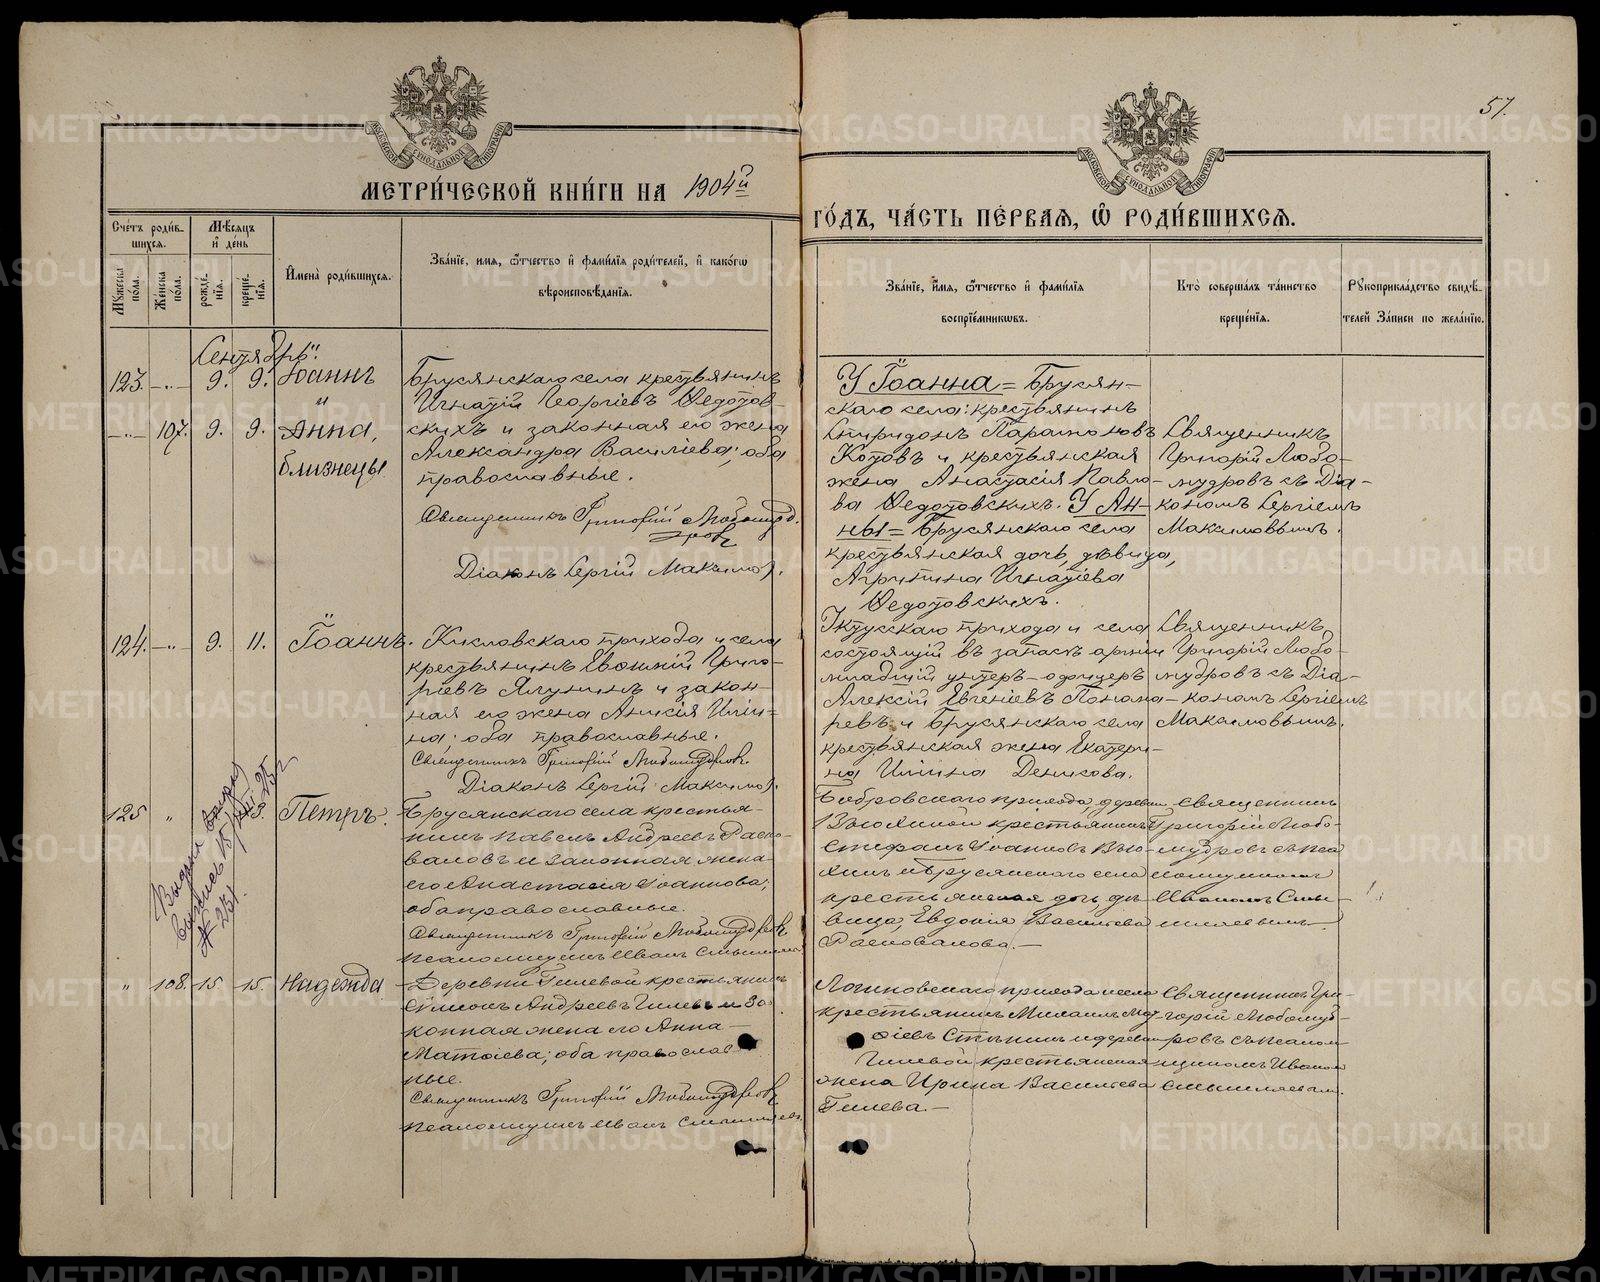 57.
МЕТРИ́ЧЕСКОЙ КНИ́ГИ НА 1904й
ГО́ДЪ, ЧА́СТЬ ПЕ́РВАѦ, Ѽ РОДИ́ВШИХСѦ.
МОСКОВСКОЙ СѴНОДАЛЬНОЙ ТИПОГРАФІИ
МОСКОВСКОЙ СѴНОДАЛЬНОЙ ТИПОГРАФІИ
Сче́тъ роди́в-
шихсѧ.
Мѣ́сѧцъ
и҆ де́нь
Мꙋ́жеска по́ла.
Же́нска по́ла.
рожде́-
нїѧ.
креще́-
нїѧ.
И҆мена̀ роди́вшихсѧ.
Зва́нїе, и҆мѧ, ѻ҆́тчество и҆ фами́лїѧ роди́телей, и҆ како́гѡ
вѣроисповѣ́данїѧ.
Зва́нїе, и҆́мѧ, ѻ҆́тчество и҆ фами́лїѧ
воспрїе́мникѡвъ.
Кто̀ соверша́лъ та́инство
креще́нїѧ.
Рꙋкоприкла́дство свидѣ́-
телей За́писи по жела́нїю.
Сентябрь.
123. —"— 9. 9. Іоаннъ
и
—"— 107. 9. 9. Анна,
близнецы
Брусянскаго села крестьянинъ
Игнатій Георгіевъ Ѳедотов-
скихъ и законная его жена
Александра Василіева; оба
православные.
Священникъ Григорій Любомуд-
ровъ
Діаконъ Сергій Максимов.
У Іоанна = Брусян-
скаго села: крестьянинъ
Спиридонъ Парамоновъ
Котовъ и крестьянская
жена Анастасія Павло-
ва Ѳедотовскихъ. У Ан-
ны = Брусянскаго села
крестьянская дочь, дѣвица,
Агрипина Игнатіева
Ѳедотовскихъ.
Священникъ
Григорій Любо-
мудровъ съ Діа-
кономъ Сергіемъ
Максимовымъ.
124. —"— 9. 11. Іоаннъ.
Кисловскаго прихода и села
крестьянинъ Евѳимій Григо-
ріевъ Ялунинъ и закон-
ная его жена Анисія Иліи-
на; оба православные.
Священникъ Григорій Любомудровъ.
Діаконъ Сергій Максимов.
Уктусскаго прихода и села
состоящій въ запасѣ арміи
младшій унтеръ-офицеръ
Алексій Евгеніевъ Понома-
ревъ и Брусянскаго села
крестьянская жена Екатери-
на Иліина Денисова.
Священникъ
Григорій Любо-
мудровъ съ Діа-
кономъ Сергіемъ
Максимовымъ.
125 " 13. Петръ.
№ 231.
Брусянскаго села крестья-
нинъ Павелъ Андреевъ Распо-
поваловъ и законная жена
его Анастасія Іоаннова;
оба православные.
Священникъ Григорій Любомудровъ
псаломщикъ Иванъ Смышляевъ
Бобровскаго прихода, деревни
крестьянинъ
Стефанъ Іоанновъ Вью-
хинъ и Брусянскаго села
крестьянская дочь, дѣ-
вица, Евдокія Васильева
Распопалова.—
Священникъ
Григорій Любо-
мудровъ съ пса-
ломщикомъ
Иваномъ Смы-
шляевымъ.
" 108. 15. 15. Надежда
Деревни Гилевой крестьянинъ
Сѵмеонъ Андреевъ Гилевъ и за-
конная жена его Анна
Матѳіева; оба православ-
ные.
Священникъ Григорій Любомудровъ
псаломщикъ Иванъ Смышляевъ
Логиновскаго прихода и села
крестьянинъ Михаилъ
и деревни
Гилевой крестьянская
жена Ирина Васильева
Гилева.—
Священникъ Гри-
горій Любомуд-
ровъ съ псалом-
щикомъ Иваномъ
Смышляевымъ.
METRIKI.GASO-URAL.RU